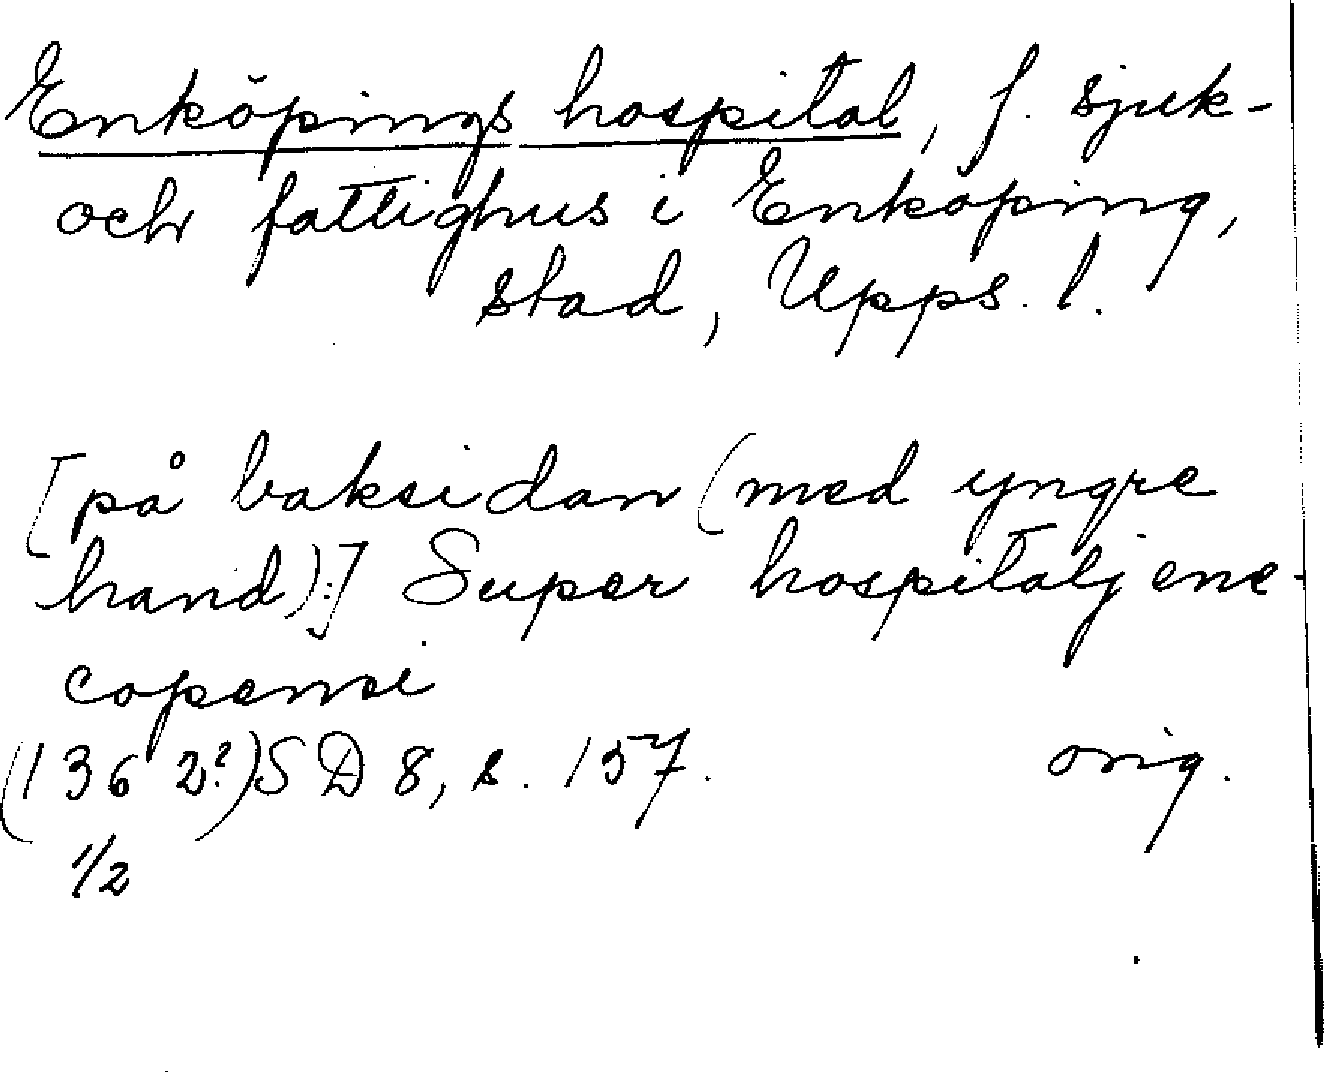 Enköpings hospital, f. sjuk-
och fattighus i Enköping,
stad, Upps. l.
[på baksidan (med yngre
hand):] Super hospitalj ene-
copensi
(1362?) SD 8, s. 157. orig.
1/2